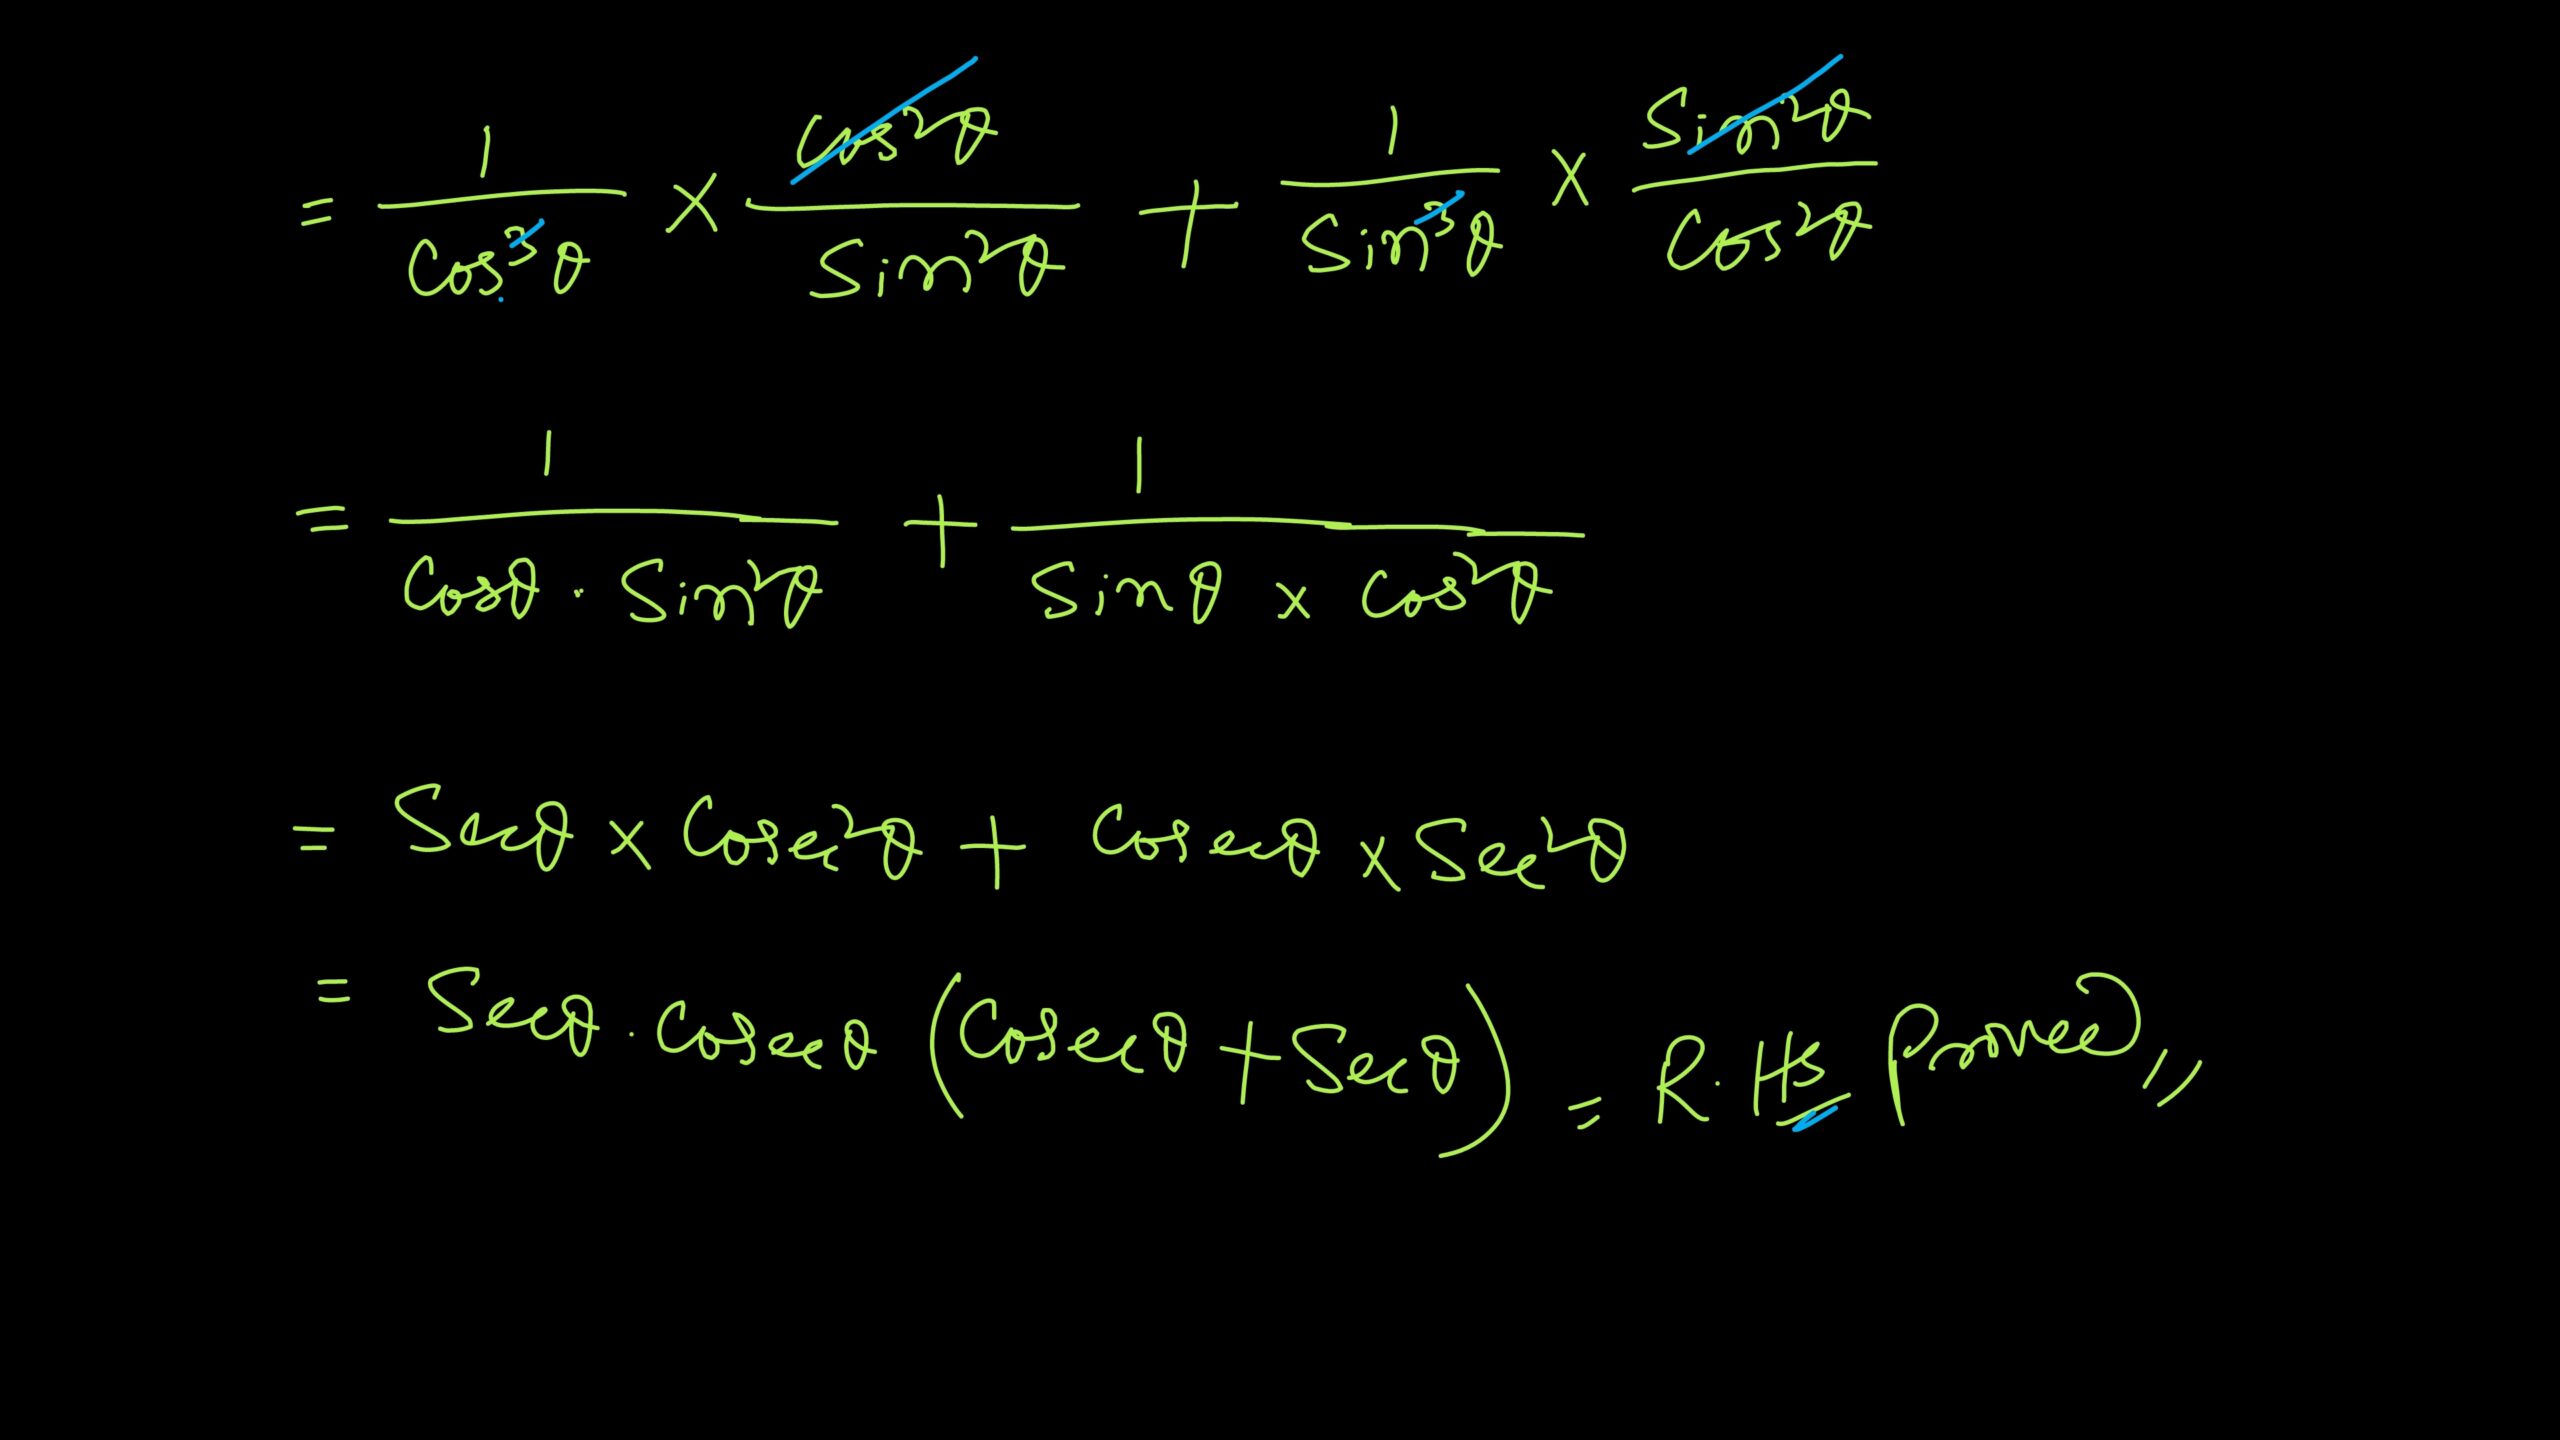 = 1/Cos³θ × Cos²θ/Sin²θ + 1/Sin³θ × Sin²θ/Cos²θ
= 1/Cosθ · Sin²θ + 1/Sinθ × Cos²θ
= Secθ × Cosec²θ + Cosecθ × Sec²θ
= Secθ · Cosecθ (Cosecθ + Secθ) = R.HS Proved,,